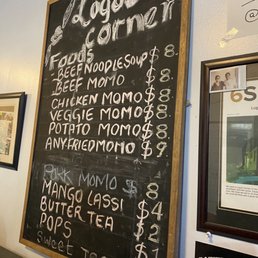 Logo
corner
Foods
-BEEF NOODLE SOUP $8.
BEEF MOMO $8.
CHICKEN MOMO $8.
VEGGIE MOMO $8.
POTATO MOMO $8.
ANY FRIED MOMO $9.
PORK MOMO $8
MANGO LASSI $4
BUTTER TEA $2
POPS
Sweet
6S